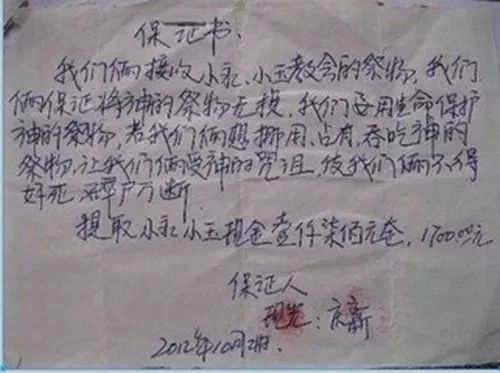 保证书.
我们俩接收小永、小玉教会的祭物,我们
俩保证将神的祭物无损,我们要用生命保护
神的祭物,若我们俩想挪用、占有、吞吃神的
祭物,让我们俩受神的咒诅,使我们俩不得
好死
提取小永小玉现金壹仟柒佰元全,1700.00元
保证人
2012年10月2